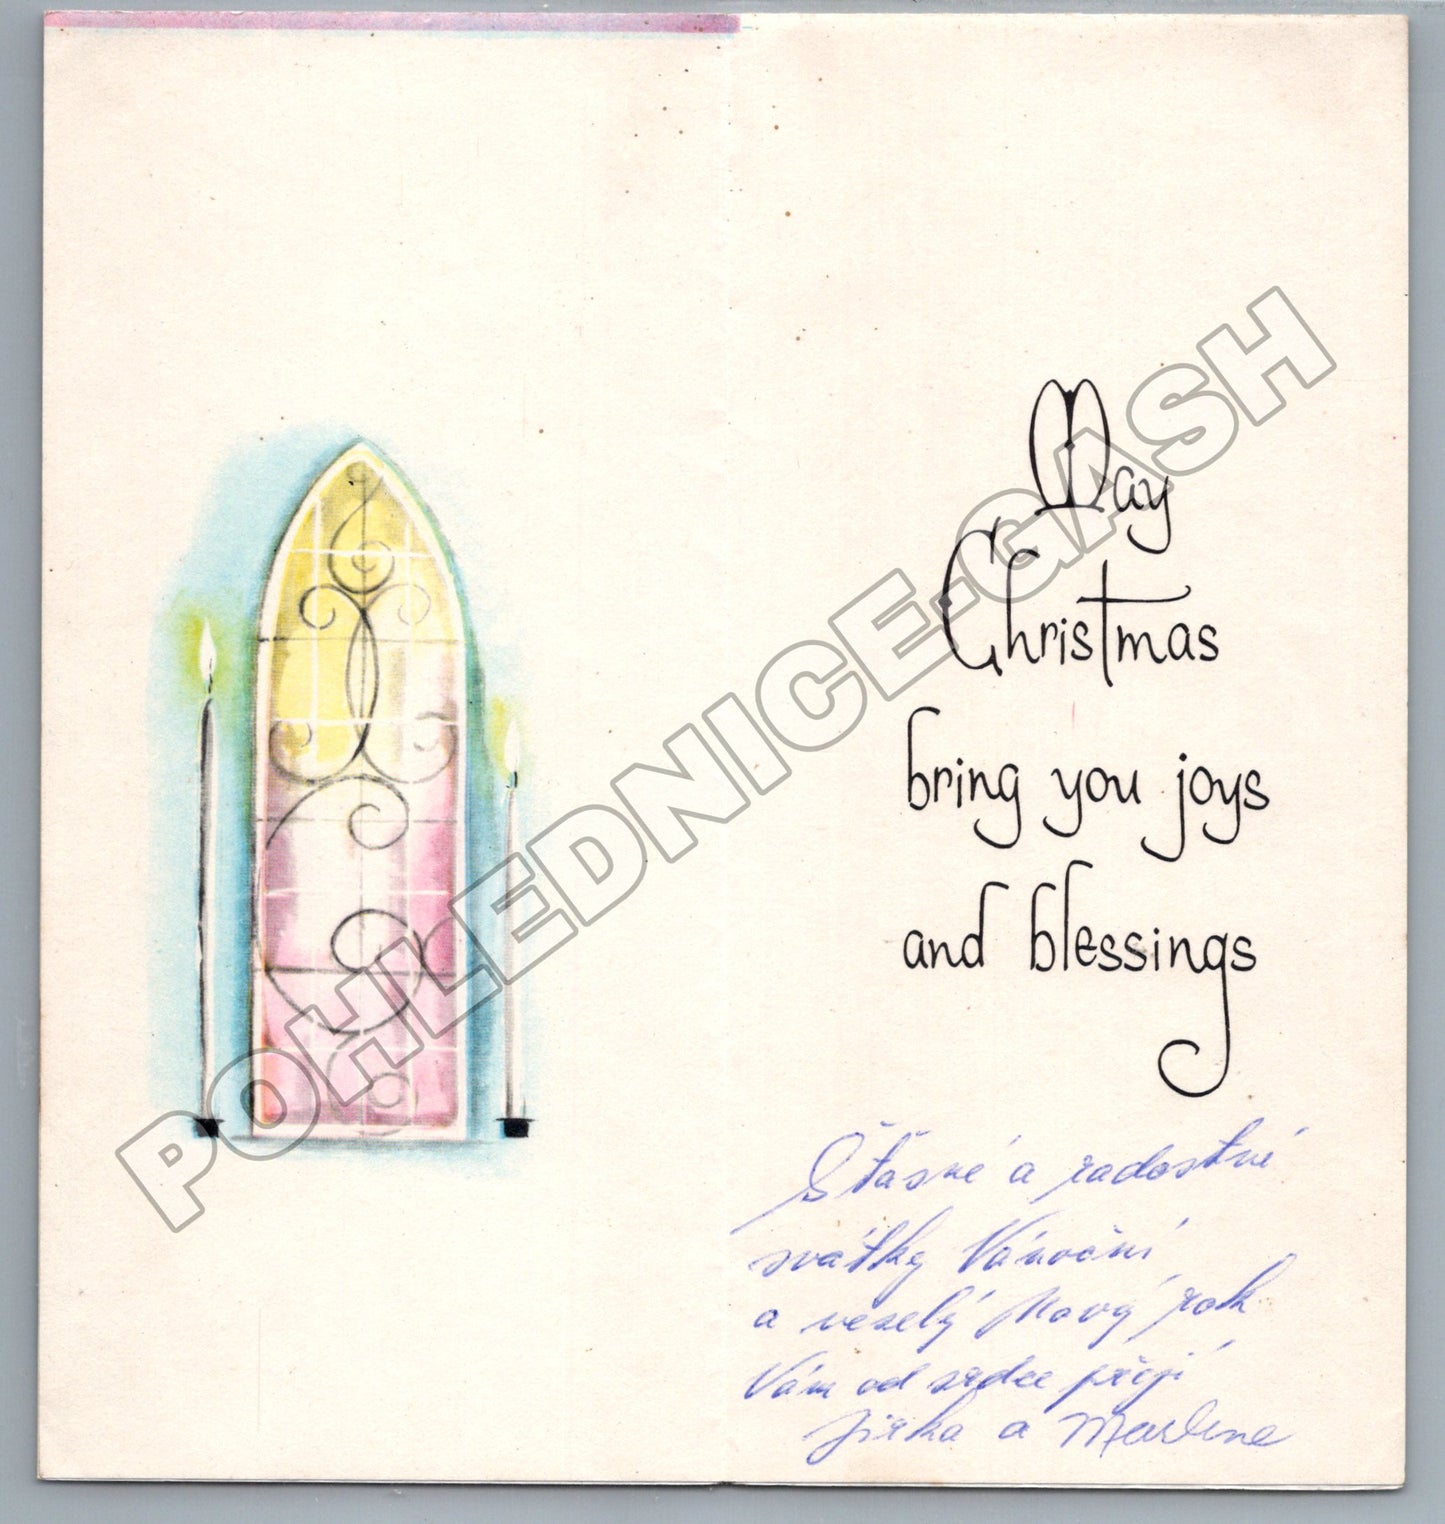 May
Christmas
bring you joys
and blessings
Šťasné a radostné
svátky Vánoční
a veselý Nový rok
Vám od srdce přejí
Jirka a Marlene
POHLEDNICE.GASH